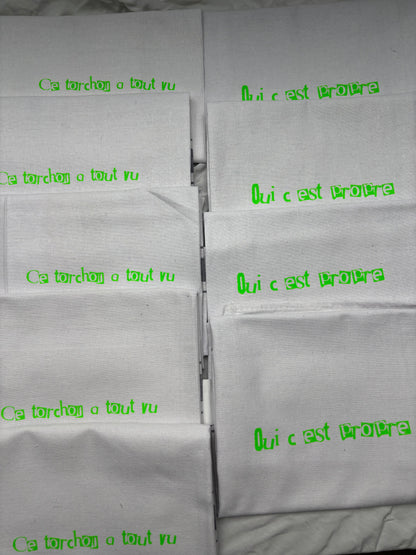 Ce torchon a tout vu
Qui c est propre
Ce torchon a tout vu
Qui c est propre
Ce torchon a tout vu
Qui c est propre
Ce torchon a tout vu
Qui c est propre
Ce torchon a tout vu